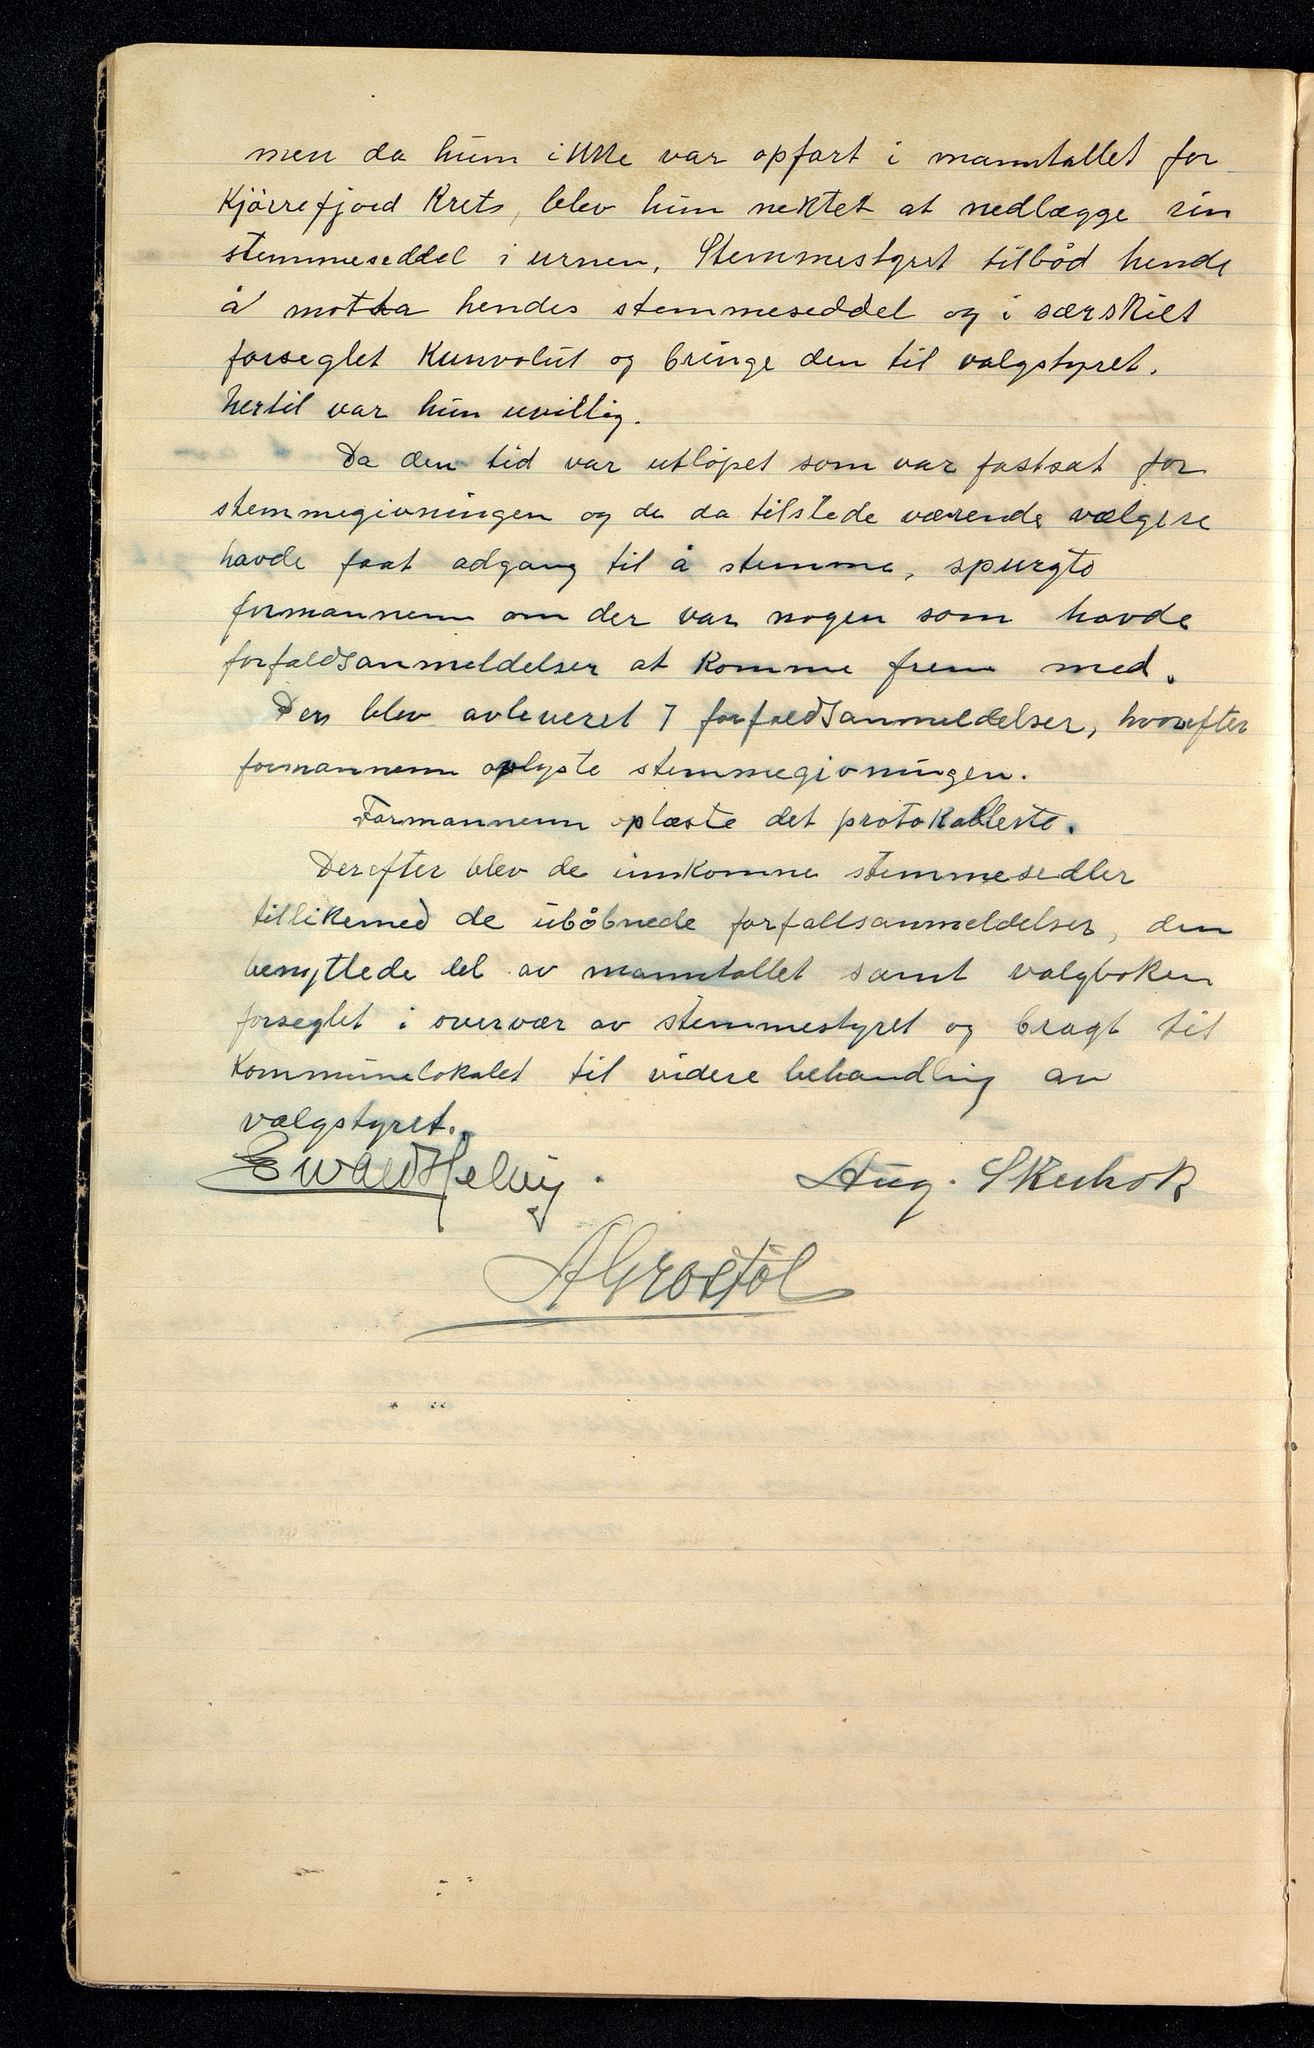 men da hun ikke var opført i manntallet for
Kjørrefjord Krets, blev hun nektet at nedlægge sin
stemmeseddel i urnen, Stemmestyret tilbød hende
å motta hendes stemmeseddel og i særskilt
forseglet Kunvolut og bringe den til valgstyret.
hertil var hun uvillig.
Da den tid var utløpet som var fastsat for
stemmegivningen og de da tilstede værende vælgere
havde faat adgang til å stemme, spurgte
formannenn om der var nogen som havde
forfaldsanmeldelser at komme frem med.
Der blev avleveret 7 forfaldsanmeldelser, hvorefter
formannenn oplyste stemmegivningen.
Formannenn oplæste det protokollerte.
Derefter blev de innkomne stemmesedler
tillikemed de uåbnede forfallsanmeldelser, den
benyttede del av manntallet samt valgboken
forseglet i overvær av stemmestyret og bragt til
Kommunelokalet til videre behandling av
valgstyret.
Ewald Helvig. Aug. Skeibrok
A Grostøl